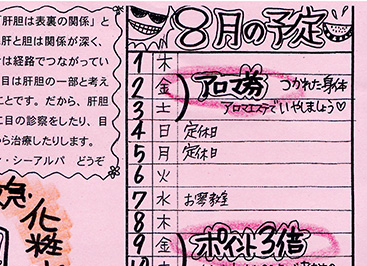 「肝胆は表裏の関係」と
肝と胆は関係が深く、
は経路でつながってい
目は肝胆の一部と考え
ことです。だから、肝胆
に目の診察をしたり、目
ら治療したりします。
ン・シーアルパ どうぞ
急・化粧
8月の予定
1 木
2 金 アロマ券 つかれた身体
3 土 アロマエステでいやしましょう♡
4 日 定休日
5 月 定休日
6 火
7 水 お琴教室
8 木
9 金 ポイント3倍
10 土